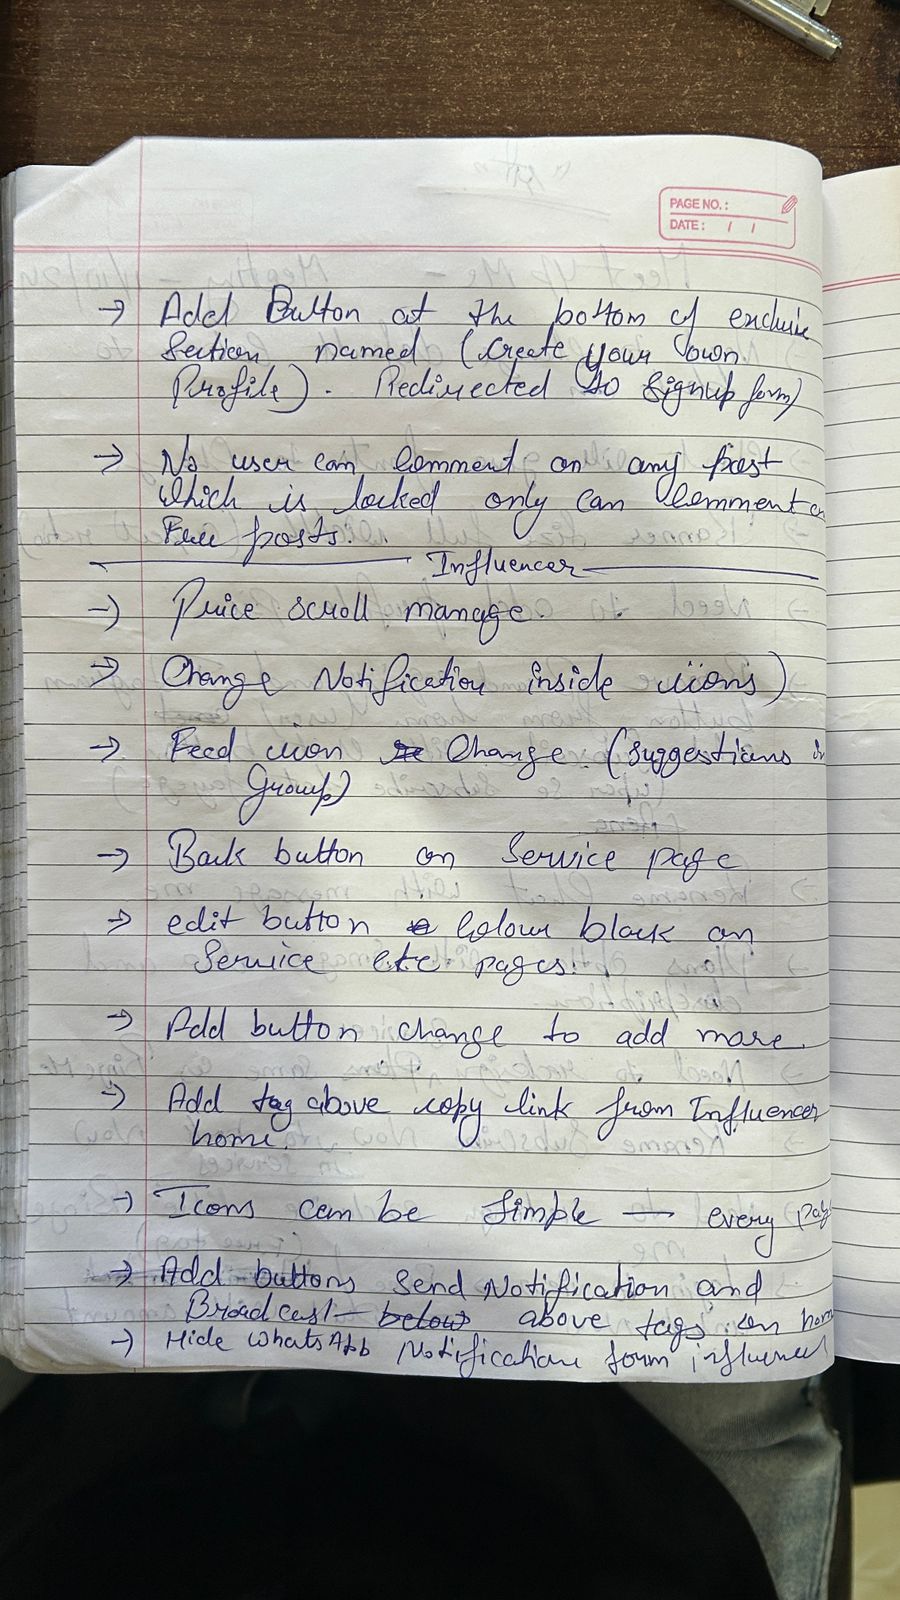 PAGE NO.:
DATE: / /
→ Add Button at the bottom of exclusive
Section named (Create your own
Profile). Redirected to Signup form)
→ No user can Comment on any post
which is locked only can Comment on
Free posts.
Influencer
→ Price scroll manage.
→ Change Notification inside icons)
→ Feed icon Change. (Suggestions in
Group)
→ Back button on Service page
→ edit button Colour black on
Service etc. pages.
→ Add button change to add more.
→ Add tag above copy link from Influencer
home.
→ Icons can be Simple — every page
→ Add buttons Send Notification and
Broadcast below above tags on home
→ Hide WhatsApp Notification form influencer